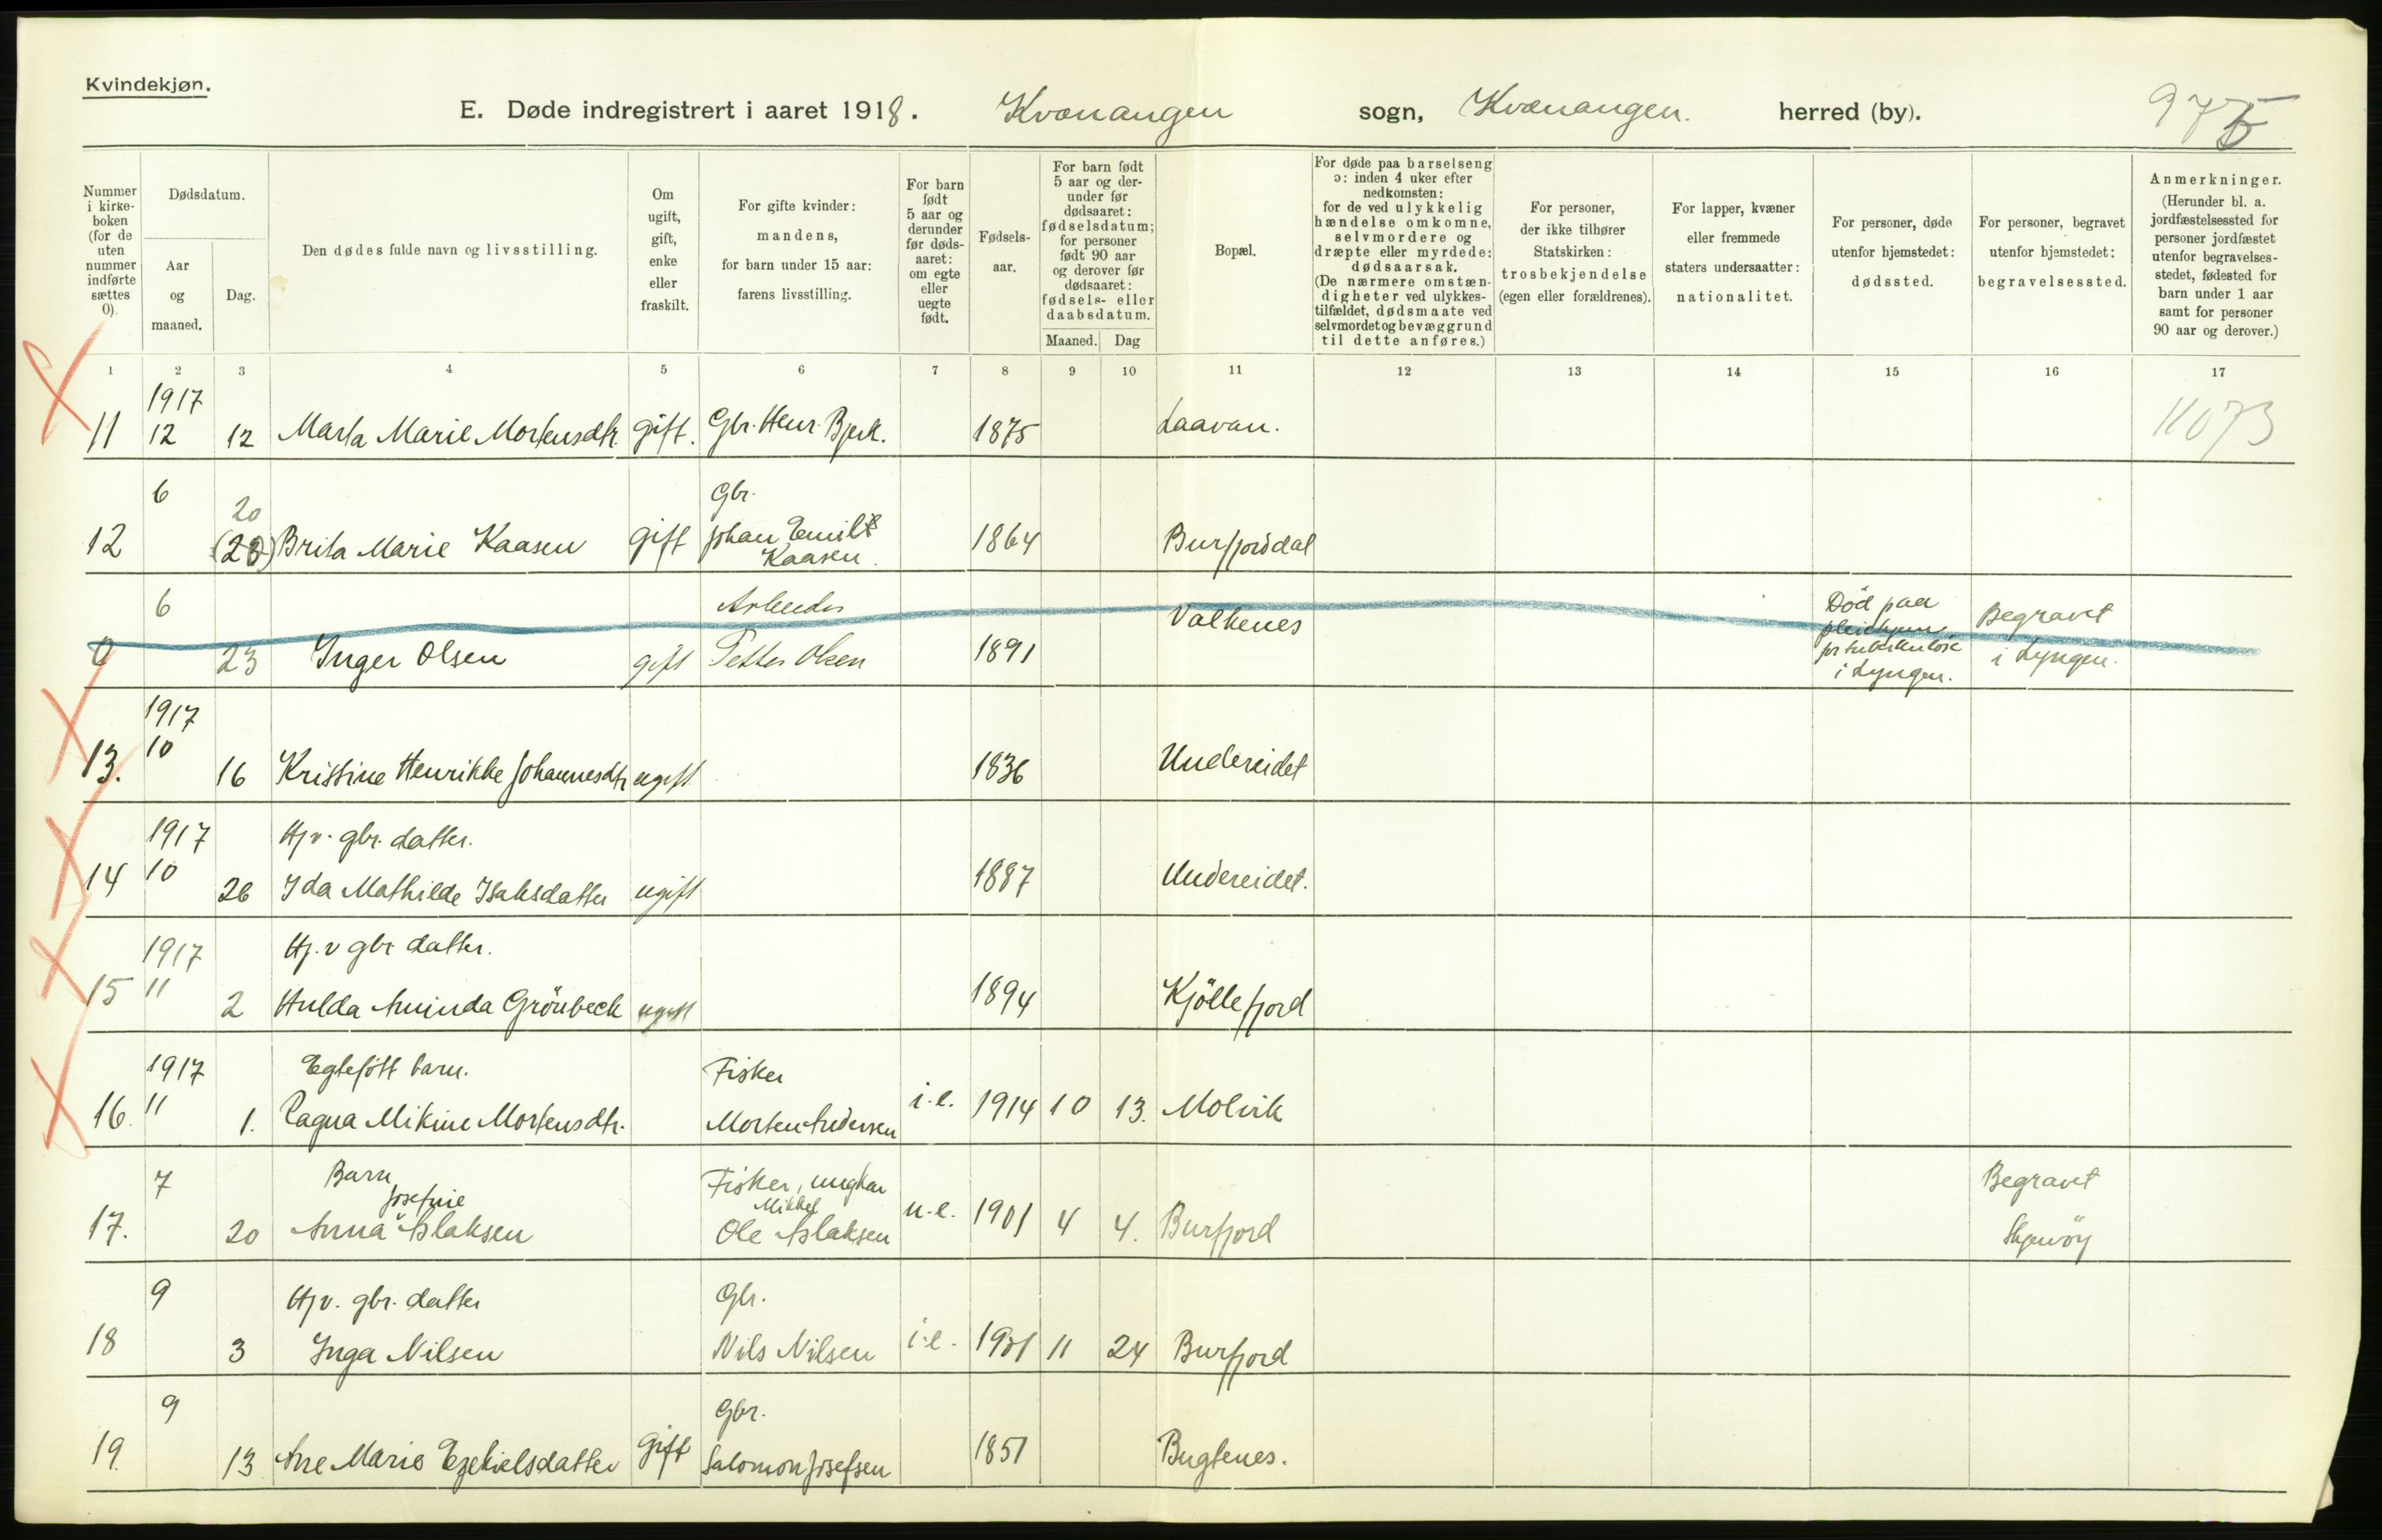 Kvindekjøn.
E. Døde indregistrert i aaret 1918. Kvænangen sogn, Kvænangen. herred (by). 975
Nummer i kirke-boken (for de uten nummer indførte sættes 0).
Dødsdatum.
Aar og maaned.
Dag.
Den dødes fulde navn og livsstilling.
Om ugift, gift, enke eller fraskilt.
For gifte kvinder: mandens, for barn under 15 aar: farens livsstilling.
For barn født 5 aar og derunder før døds-aaret: om egte eller uegte født.
Fødsels-aar.
For barn født 5 aar og der-under før dødsaaret: fødselsdatum; for personer født 90 aar og derover før dødsaaret: fødsels- eller daabsdatum.
Maaned. Dag
Bopæl.
For døde paa barselseng ɔ: inden 4 uker efter nedkomsten: for de ved ulykkelig hændelse omkomne, selvmordere og dræpte eller myrdede: dødsaarsak. (De nærmere omstæn-digheter ved ulykkes-tilfældet, dødsmaate ved selvmordet og bevæggrund til dette anføres.)
For personer, der ikke tilhører Statskirken: trosbekjendelse (egen eller forældrenes).
For lapper, kvæner eller fremmede staters undersaatter: nationalitet.
For personer, døde utenfor hjemstedet: dødssted.
For personer, begravet utenfor hjemstedet: begravelsessted.
Anmerkninger. (Herunder bl. a. jordfæstelsessted for personer jordfæstet utenfor begravelses-stedet, fødested for barn under 1 aar samt for personer 90 aar og derover.)
1 2 3 4 5 6 7 8 9 10 11 12 13 14 15 16 17
1917
11 12 12 Marta Marie Mortensdtr. gift. Gbr. Henr. Bjerk. 1875 Laavan. 11073
6 20 Gbr.
12 (20) Brita Marie Kaasen gift Johan Emil Kaasen. 1864 Burfjorddal
6 Arbeider Valkenes Død paa pleiehjem for tuberkulose i Lyngen. Begravet i Lyngen.
0 23 Inger Olsen gift Petter Olsen 1891
1917
13. 10 16 Kristine Henrikke Johannesdtr ugift 1836 Undereidet
1917 Hjv. gbr. datter.
14 10 26 Ida Mathilde Isaksdatter ugift 1887 Undereidet.
1917 Hj. v gbr datter.
15 11 2 Hulda Aminda Grönbeck ugift 1894 Kjöllefjord
1917 Egtefött barn. Fisker
16. 11 1. Ragna Mikine Mortensdtr. Morten Andersen i.e. 1914 10 13. Molvik
7 Barn Fisker, ungkar Begravet
Josefine Mikkel
17. 20 Anna Aslaksen Ole Aslaksen u.e. 1901 4 4. Burfjord Skjervöy
9 Hjv. gbr. datter Gbr.
18 3 Inga Nilsen Nils Nilsen i.e. 1901 11 24 Burfjord
9 Gbr.
19. 13 Ane Marie Ezekielsdatter gift Salomon Josefsen 1851 Bugtenes.